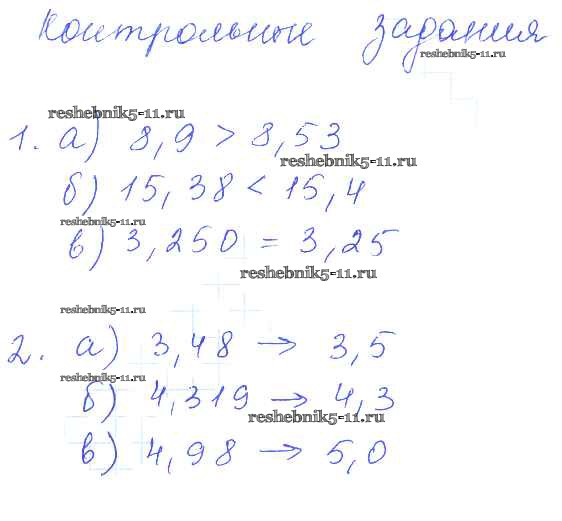 Контрольные задания
reshebnik5-11.ru
reshebnik5-11.ru
1. а) 8,9 > 8,53
reshebnik5-11.ru
б) 15,38 < 15,4
reshebnik5-11.ru
в) 3,250 = 3,25
reshebnik5-11.ru
reshebnik5-11.ru
2. а) 3,48 → 3,5
reshebnik5-11.ru
б) 4,319 → 4,3
reshebnik5-11.ru
в) 4,98 → 5,0